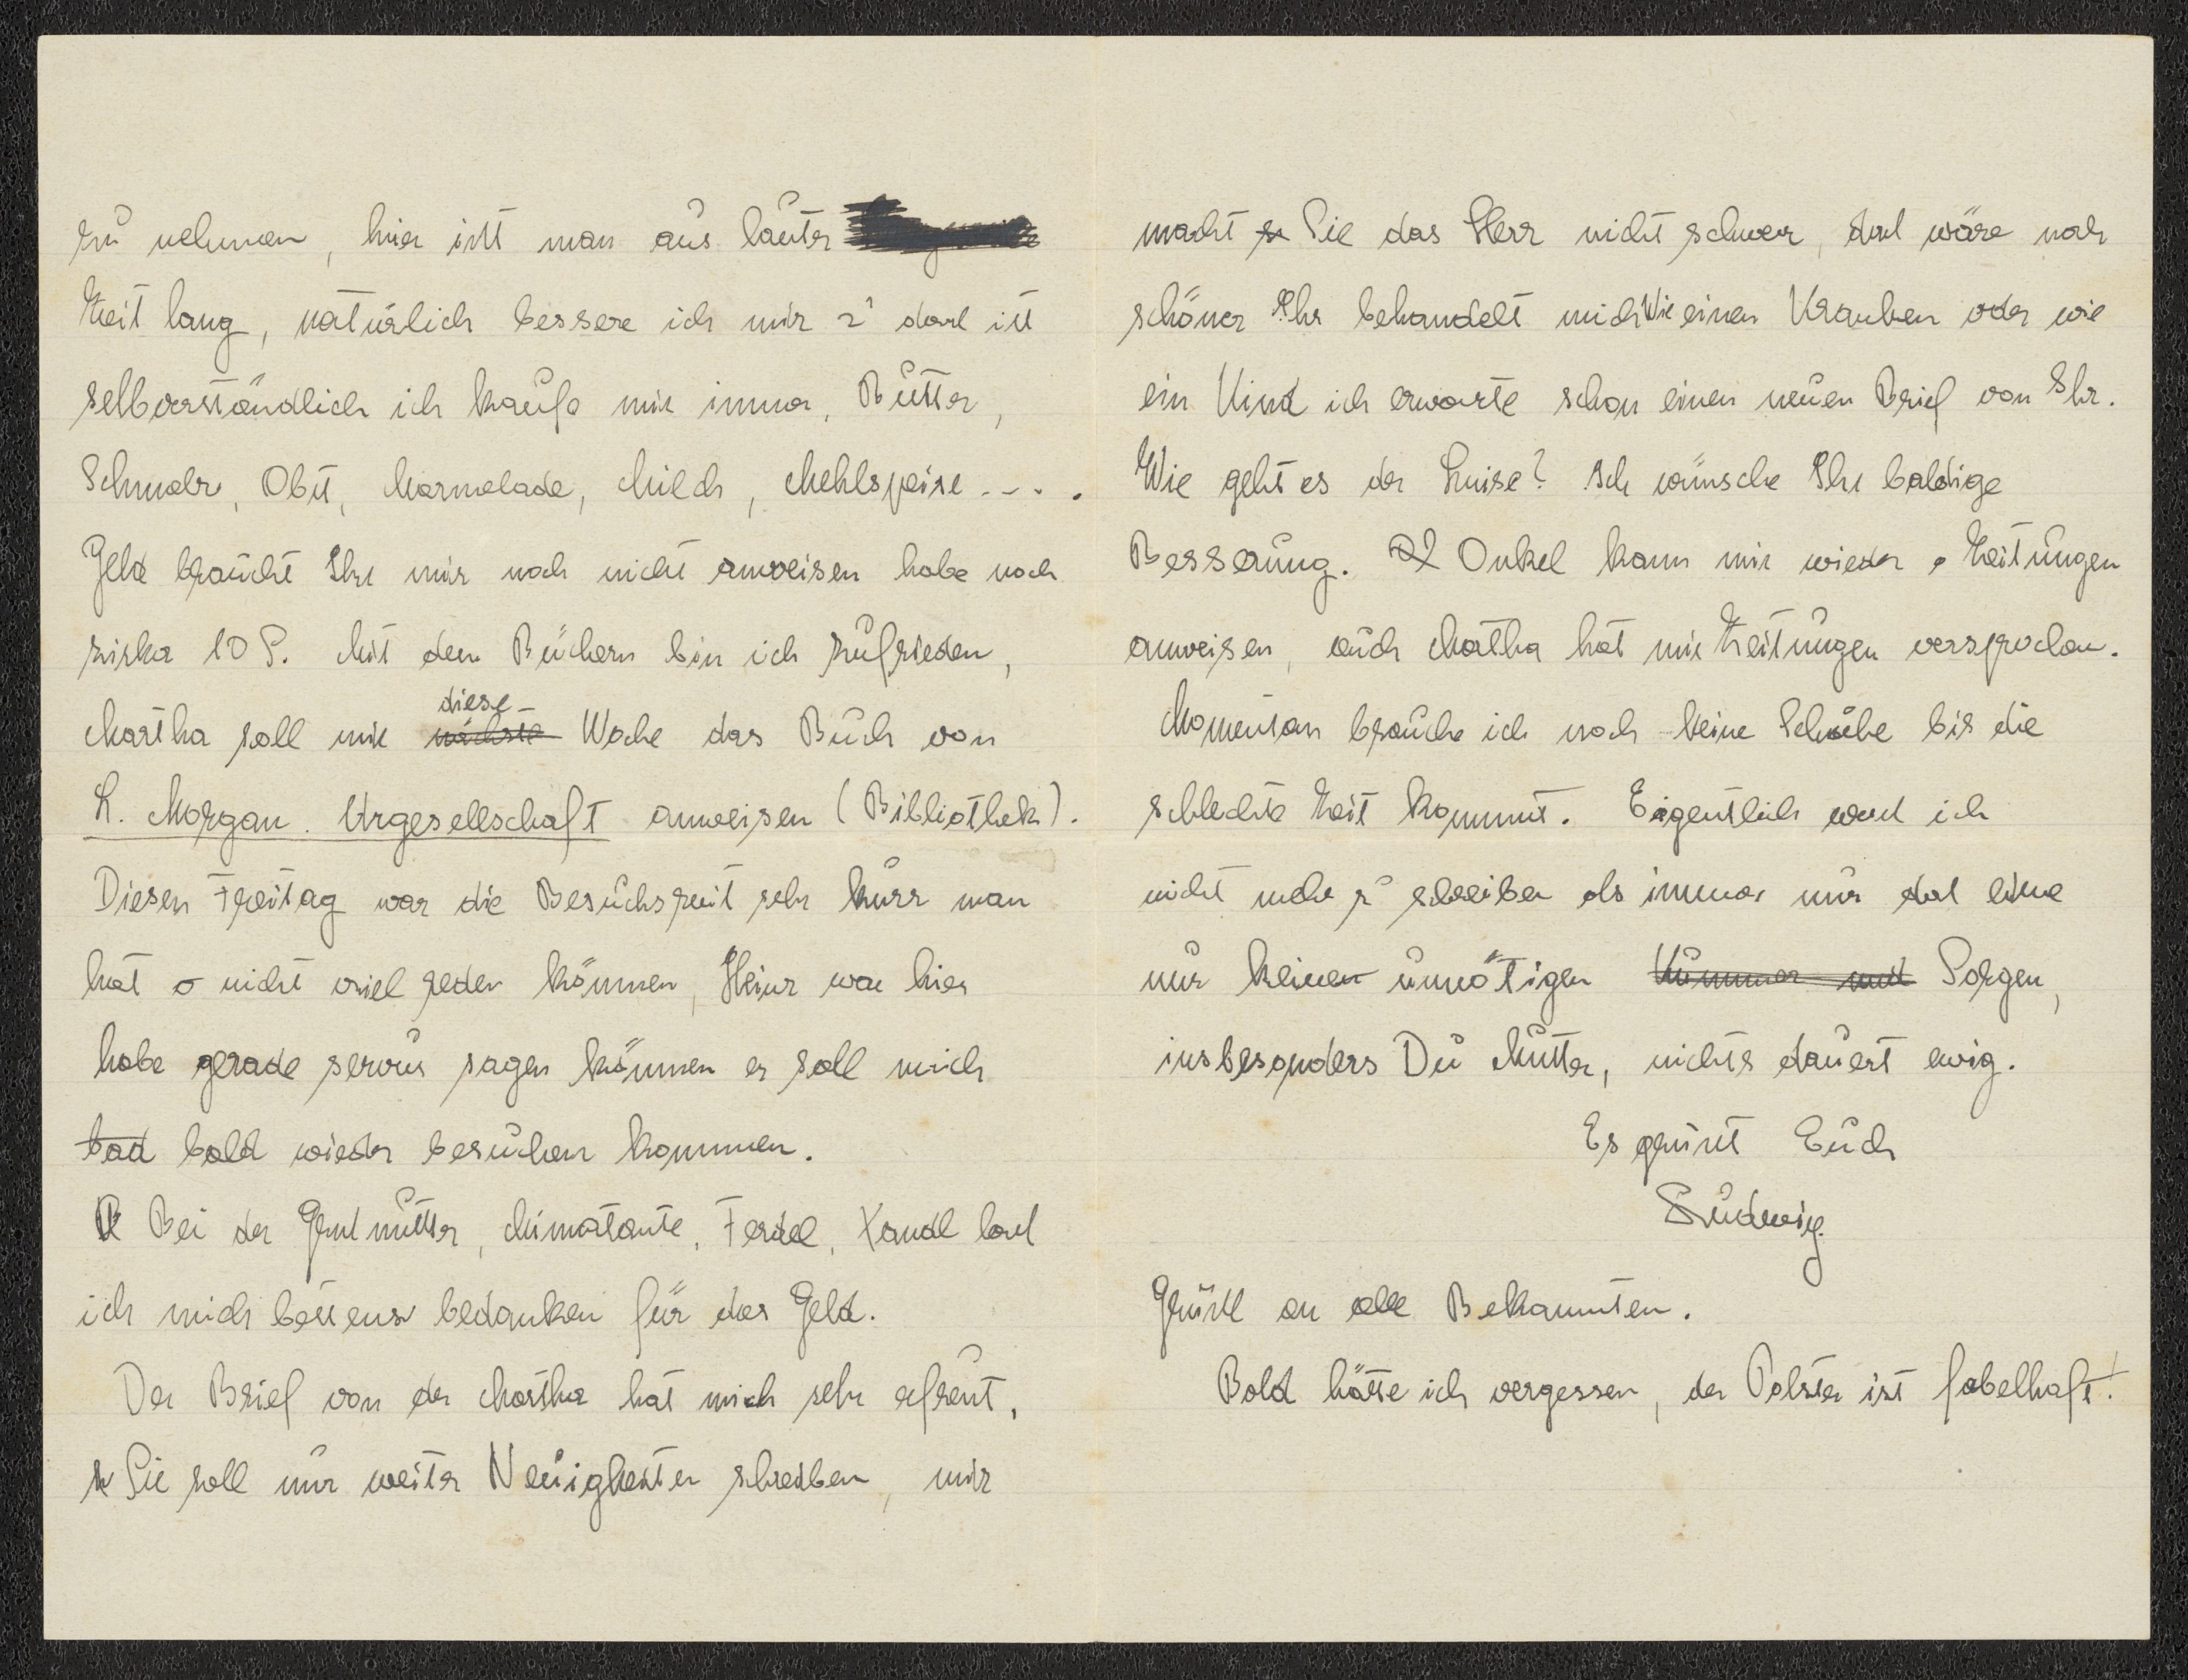 zu nehmen, hier ißt man aus lauter
Zeit lang, natürlich bessere ich mir z' daß ist
selbverständlich ich kaufe mir immer, Butter,
Schmalz, Obst, Marmelade, Milch, Mehlspeise - - - .
Geld braucht Ihr mir noch nicht anweisen habe noch
zirka 10 S. Mit den Büchern bin ich zufrieden,
Martha soll mir nächste diese Woche das Buch von
L. Morgan. Urgesellschaft anweisen (Bibliothek).
Diesen Freitag war die Besuchszeit sehr kurz man
hat nicht viel reden können, Heinz war hier
habe gerade servus sagen können er soll mich
bad bald wieder besuchen kommen.
Bei der Großmutter, Mimatante, Ferdl, Xandl laß
ich mich bestens bedanken für das Geld.
Der Brief von der Martha hat mich sehr erfreut,
Sie soll nur weiter Neuigkeiten schreiben, mir
macht Sie das Herz nicht schwer, daß wäre noch
schöner Ihr behandelt mich Wie einen Kranken oder wie
ein Kind ich erwarte schon einen neuen Brief von Ihr.
Wie geht es der Luise? Ich wünsche Ihr baldige
Besserung. Onkel kann mir wieder Zeitungen
anweisen, auch Matha hat mir Zeitungen versprochen.
Momentan brauche ich noch keine Schuhe bis die
schlechte Zeit kommt. Eigentlich weiß ich
nicht mehr z' schreiben als immer nur daß eine
nur keinen unnötigen Kummer und Sorgen,
insbesonders Du Mutter, nichts dauert ewig.
Es grüßt Euch
Ludwig.
Grüße an alle Bekannten.
Bald hätte ich vergessen, der Polster ist fabelhaft!